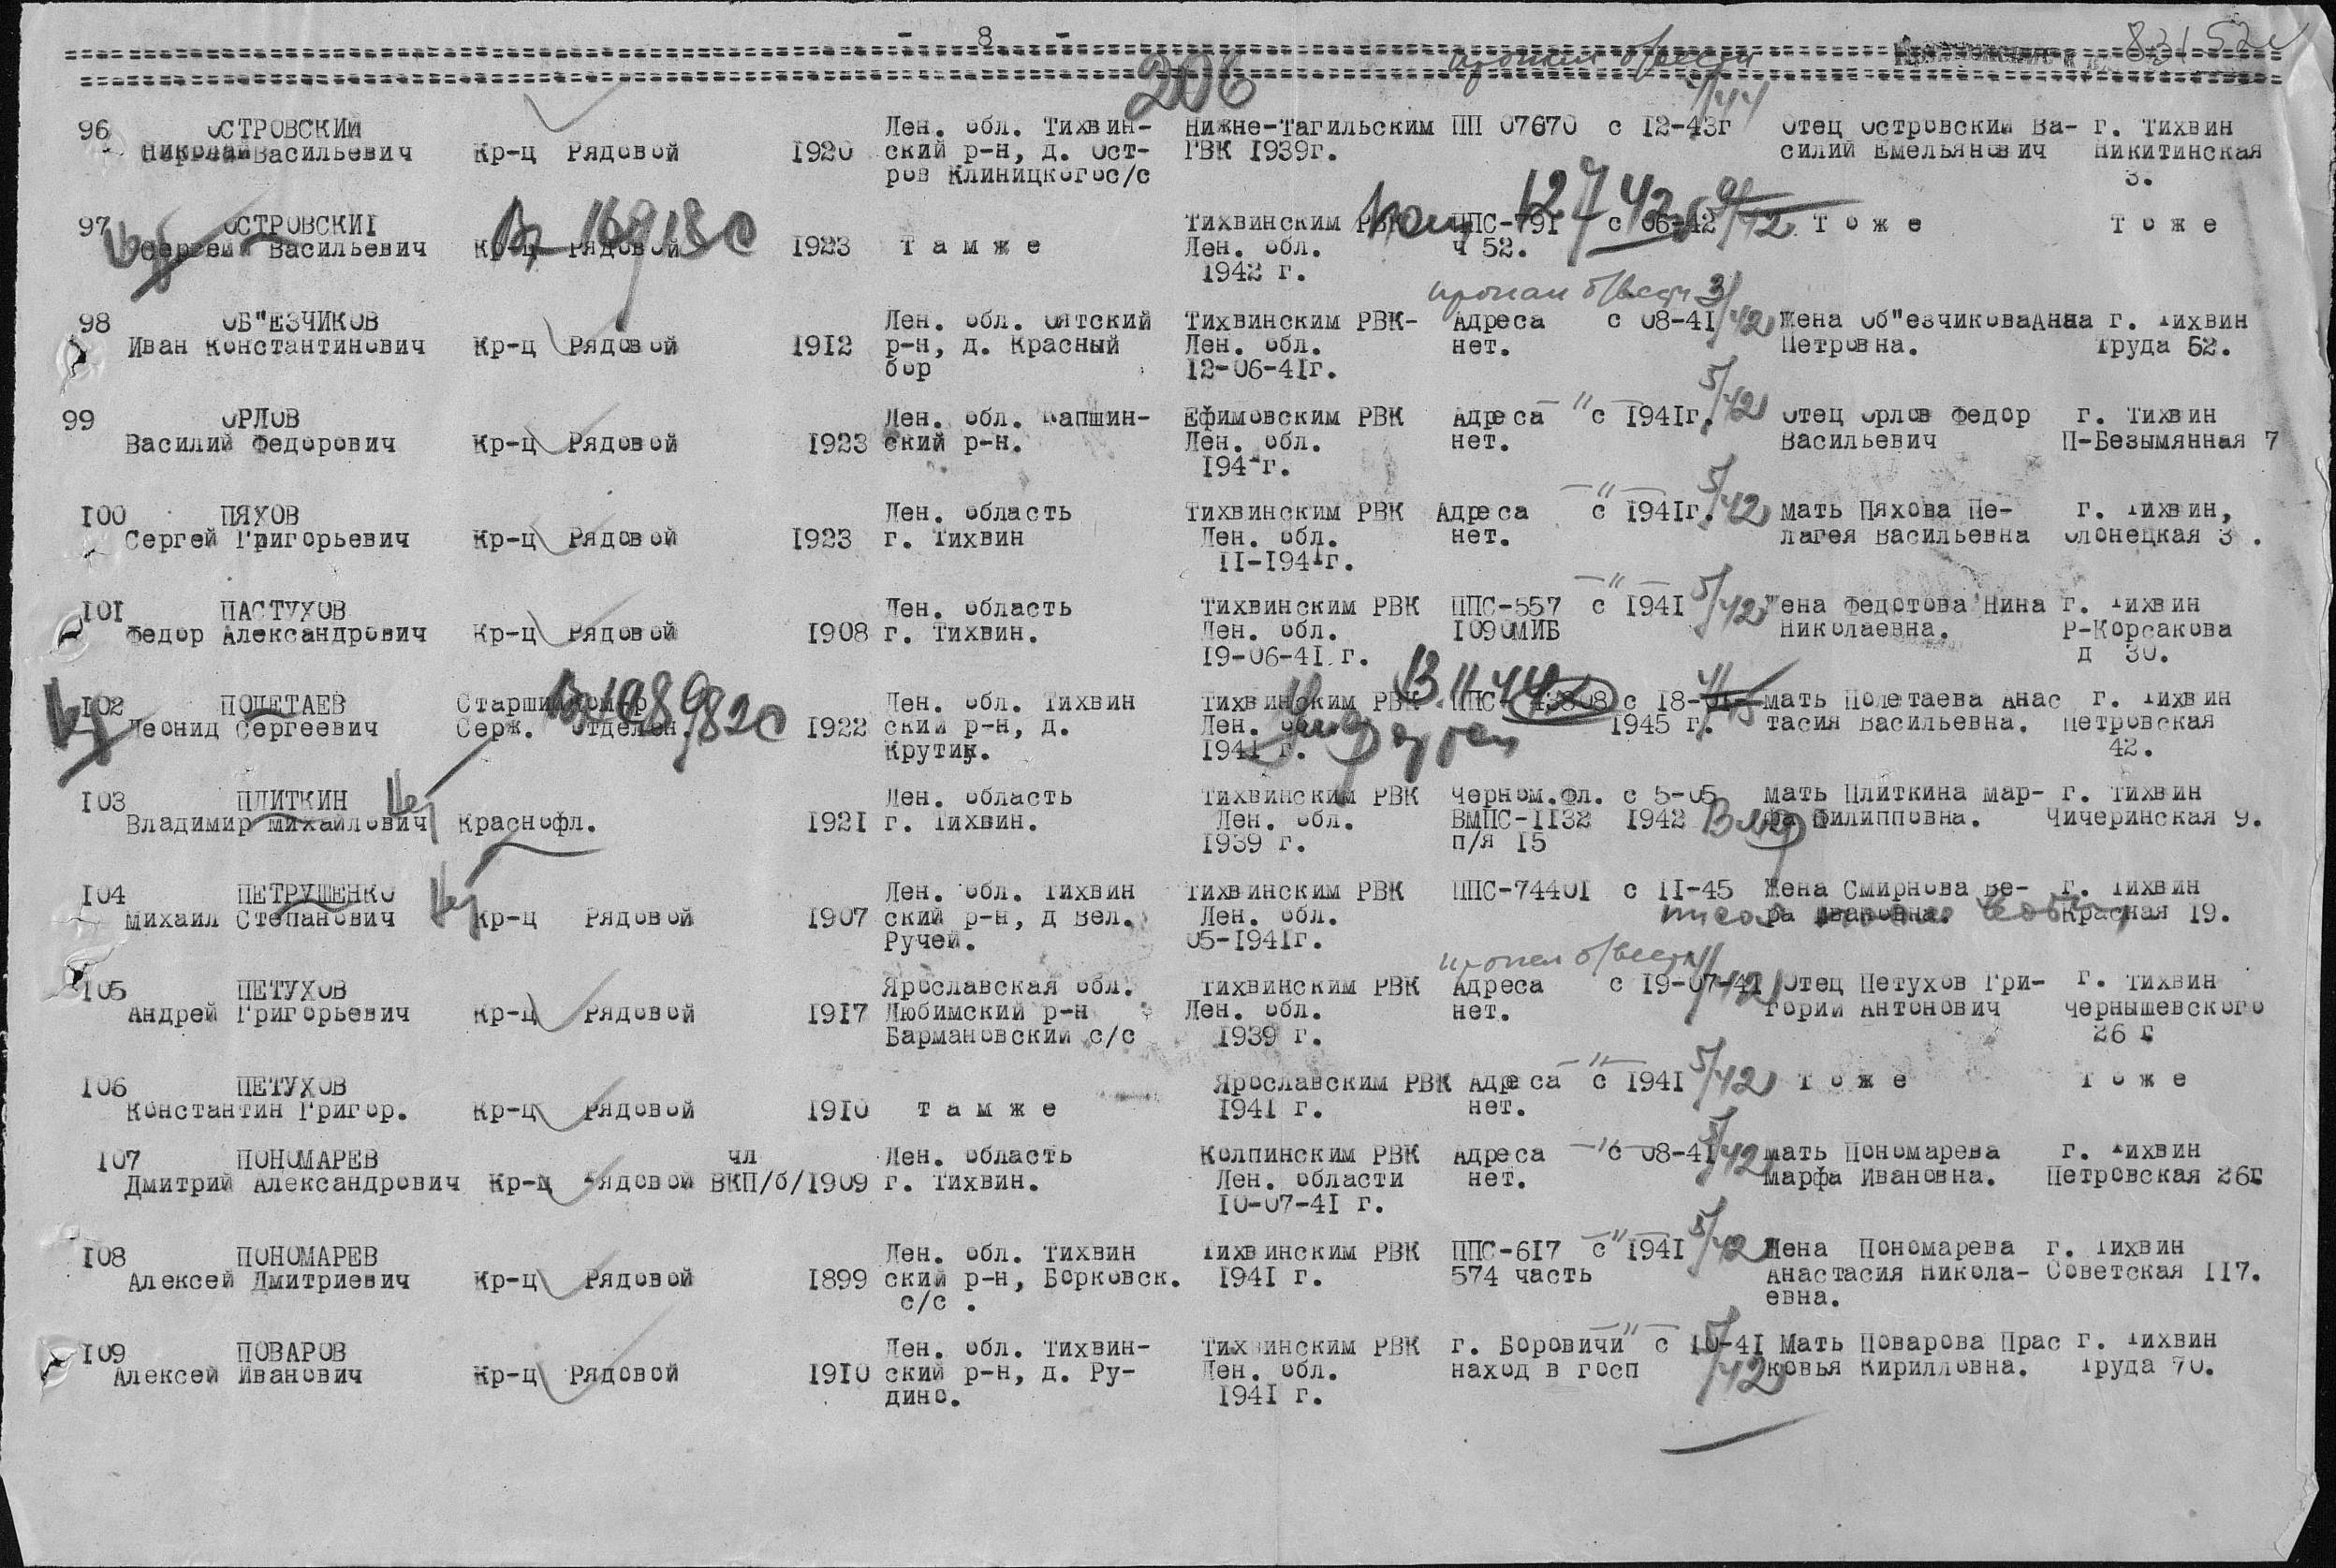 - 8 -
206
пропал б/вести 1/44
83152с
96 ОСТРОВСКИЙ Лен. обл. Тихвин- Нижне-Тагильским ПП 07670 с 12-43г Отец Островский Ва- г. Тихвин
Николай Васильевич Кр-ц Рядовой 1920 ский р-н, д. Ост- ГВК 1939г. силий Емельянович Никитинская
ров Клиницкогос/с 3.
97 ОСТРОВСКИЙ Тихвинским РВК ППС-791 с 06-42 Т о ж е Т о ж е
Сергей Васильевич Кр-ц Рядовой 1923 т а м ж е Лен. обл. ч 52.
1942 г.
пропал б/вести 3/42
98 ОБ"ЕЗЧИКОВ Лен. обл. Оятский Тихвинским РВК- Адреса с 08-41 Жена Об"езчиковаАнна г. Тихвин
Иван Константинович Кр-ц Рядовой 1912 р-н, д. Красный Лен. обл. нет. Петровна. Труда 52.
бор 12-06-41г.
5/42
99 ОРЛОВ Лен. обл. Капшин- Ефимовским РВК Адреса —"— с 1941г. Отец Орлов Федор г. Тихвин
Василий Федорович Кр-ц Рядовой 1923 ский р-н. Лен. обл. нет. Васильевич П-Безымянная 7
194-г.
—"— 5/42
100 ПЯХОВ Лен. область Тихвинским РВК Адреса с 1941г. Мать Пяхова Пе- г. Тихвин,
Сергей Григорьевич Кр-ц Рядовой 1923 г. Тихвин Лен. обл. нет. лагея Васильевна Олонецкая 3 .
11-1941г.
—"— 5/42
101 ПАСТУХОВ Лен. область Тихвинским РВК ППС-557 с 1941 Жена Федотова Нина г. Тихвин
Федор Александрович Кр-ц Рядовой 1908 г. Тихвин. Лен. обл. 1090МИБ Николаевна. Р-Корсакова
19-06-41 г. д 30.
102 ПОЛЕТАЕВ Старший Комдр Лен. обл. Тихвин Тихвинским РВК ППС- 43808 с 18- Мать Полетаева Анас г. Тихвин
Леонид Сергеевич Серж. отделен. 1922 ский р-н, д. Лен. обл. 1945 г. тасия Васильевна. Петровская
Крутик. 1941 г. 42.
103 ПЛИТКИН Лен. область Тихвинским РВК Черном.фл. с 5-05 Мать Плиткина Мар- г. Тихвин
Владимир Михайлович Краснофл. 1921 г. Тихвин. Лен. обл. ВМПС-1132 1942 фа Филипповна. Чичеринская 9.
1939 г. п/я 15
104 ПЕТРУШЕНКО Лен. обл. Тихвин Тихвинским РВК ППС-74401 с 11-45 Жена Смирнова Ве- г. Тихвин
Михаил Степанович Кр-ц Рядовой 1907 ский р-н, д Вел. Лен. обл. ра Ивановна. Красная 19.
Ручей. 05-1941г.
пропал б/вести
105 ПЕТУХОВ Ярославская обл. Тихвинским РВК Адреса с 19-07-41 Отец Петухов Гри- г. Тихвин
Андрей Григорьевич Кр-ц Рядовой 1917 Любимский р-н Лен. обл. нет. горий Антонович Чернышевского
Бармановский с/с 1939 г. 26 г
106 ПЕТУХОВ Ярославским РВК Адреса —"— с 1941 5/42 Т о ж е Т о ж е
Константин Григор. Кр-ц Рядовой 1910 т а м ж е 1941 г. нет.
107 ПОНОМАРЕВ чл Лен. область Колпинским РВК Адреса —"— с 08-41 Мать Пономарева г. Тихвин
Дмитрий Александрович Кр-ц Рядовой ВКП/б/ 1909 г. Тихвин. Лен. области нет. Марфа Ивановна. Петровская 26г
10-07-41 г.
108 ПОНОМАРЕВ Лен. обл. Тихвин Тихвинским РВК ППС-617 —"— с 1941 5/42 Жена Пономарева г. Тихвин
Алексей Дмитриевич Кр-ц Рядовой 1899 ский р-н, Борковск. 1941 г. 574 часть Анастасия Никола- Советская 117.
с/с . евна.
109 ПОВАРОВ Лен. обл. Тихвин- Тихвинским РВК г. Боровичи —"— с 10-41 Мать Поварова Прас г. Тихвин
Алексей Иванович Кр-ц Рядовой 1910 ский р-н, д. Ру- Лен. обл. наход в госп ковья Кирилловна. Труда 70.
дино. 1941 г.